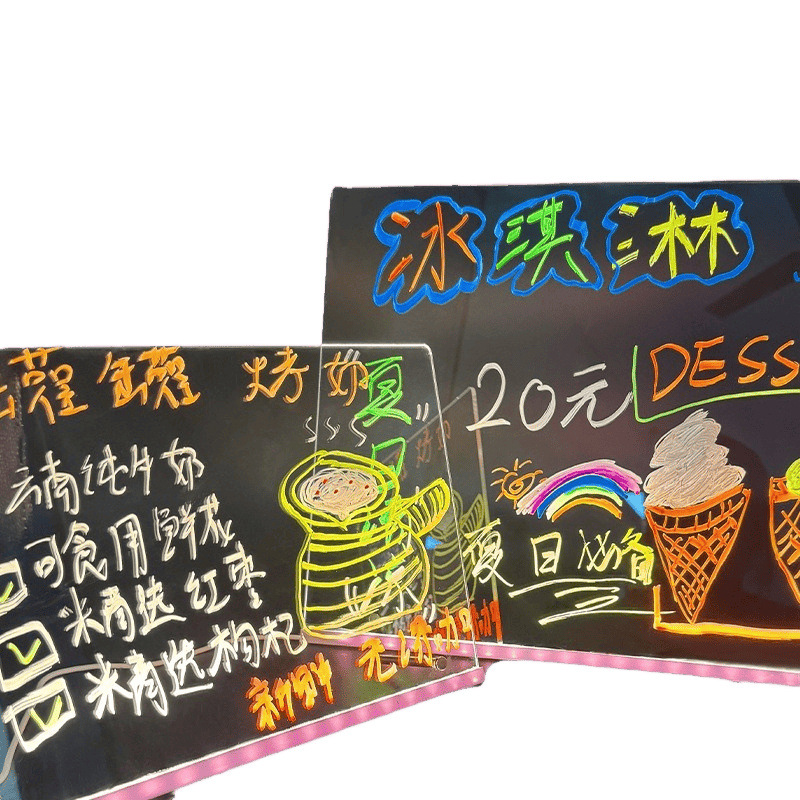 冰淇淋
20元
DESS
夏日必备
罐罐 烤奶
云南纯牛奶
可食用鲜花
精选红枣
精选枸杞
新鲜 无添加
夏日